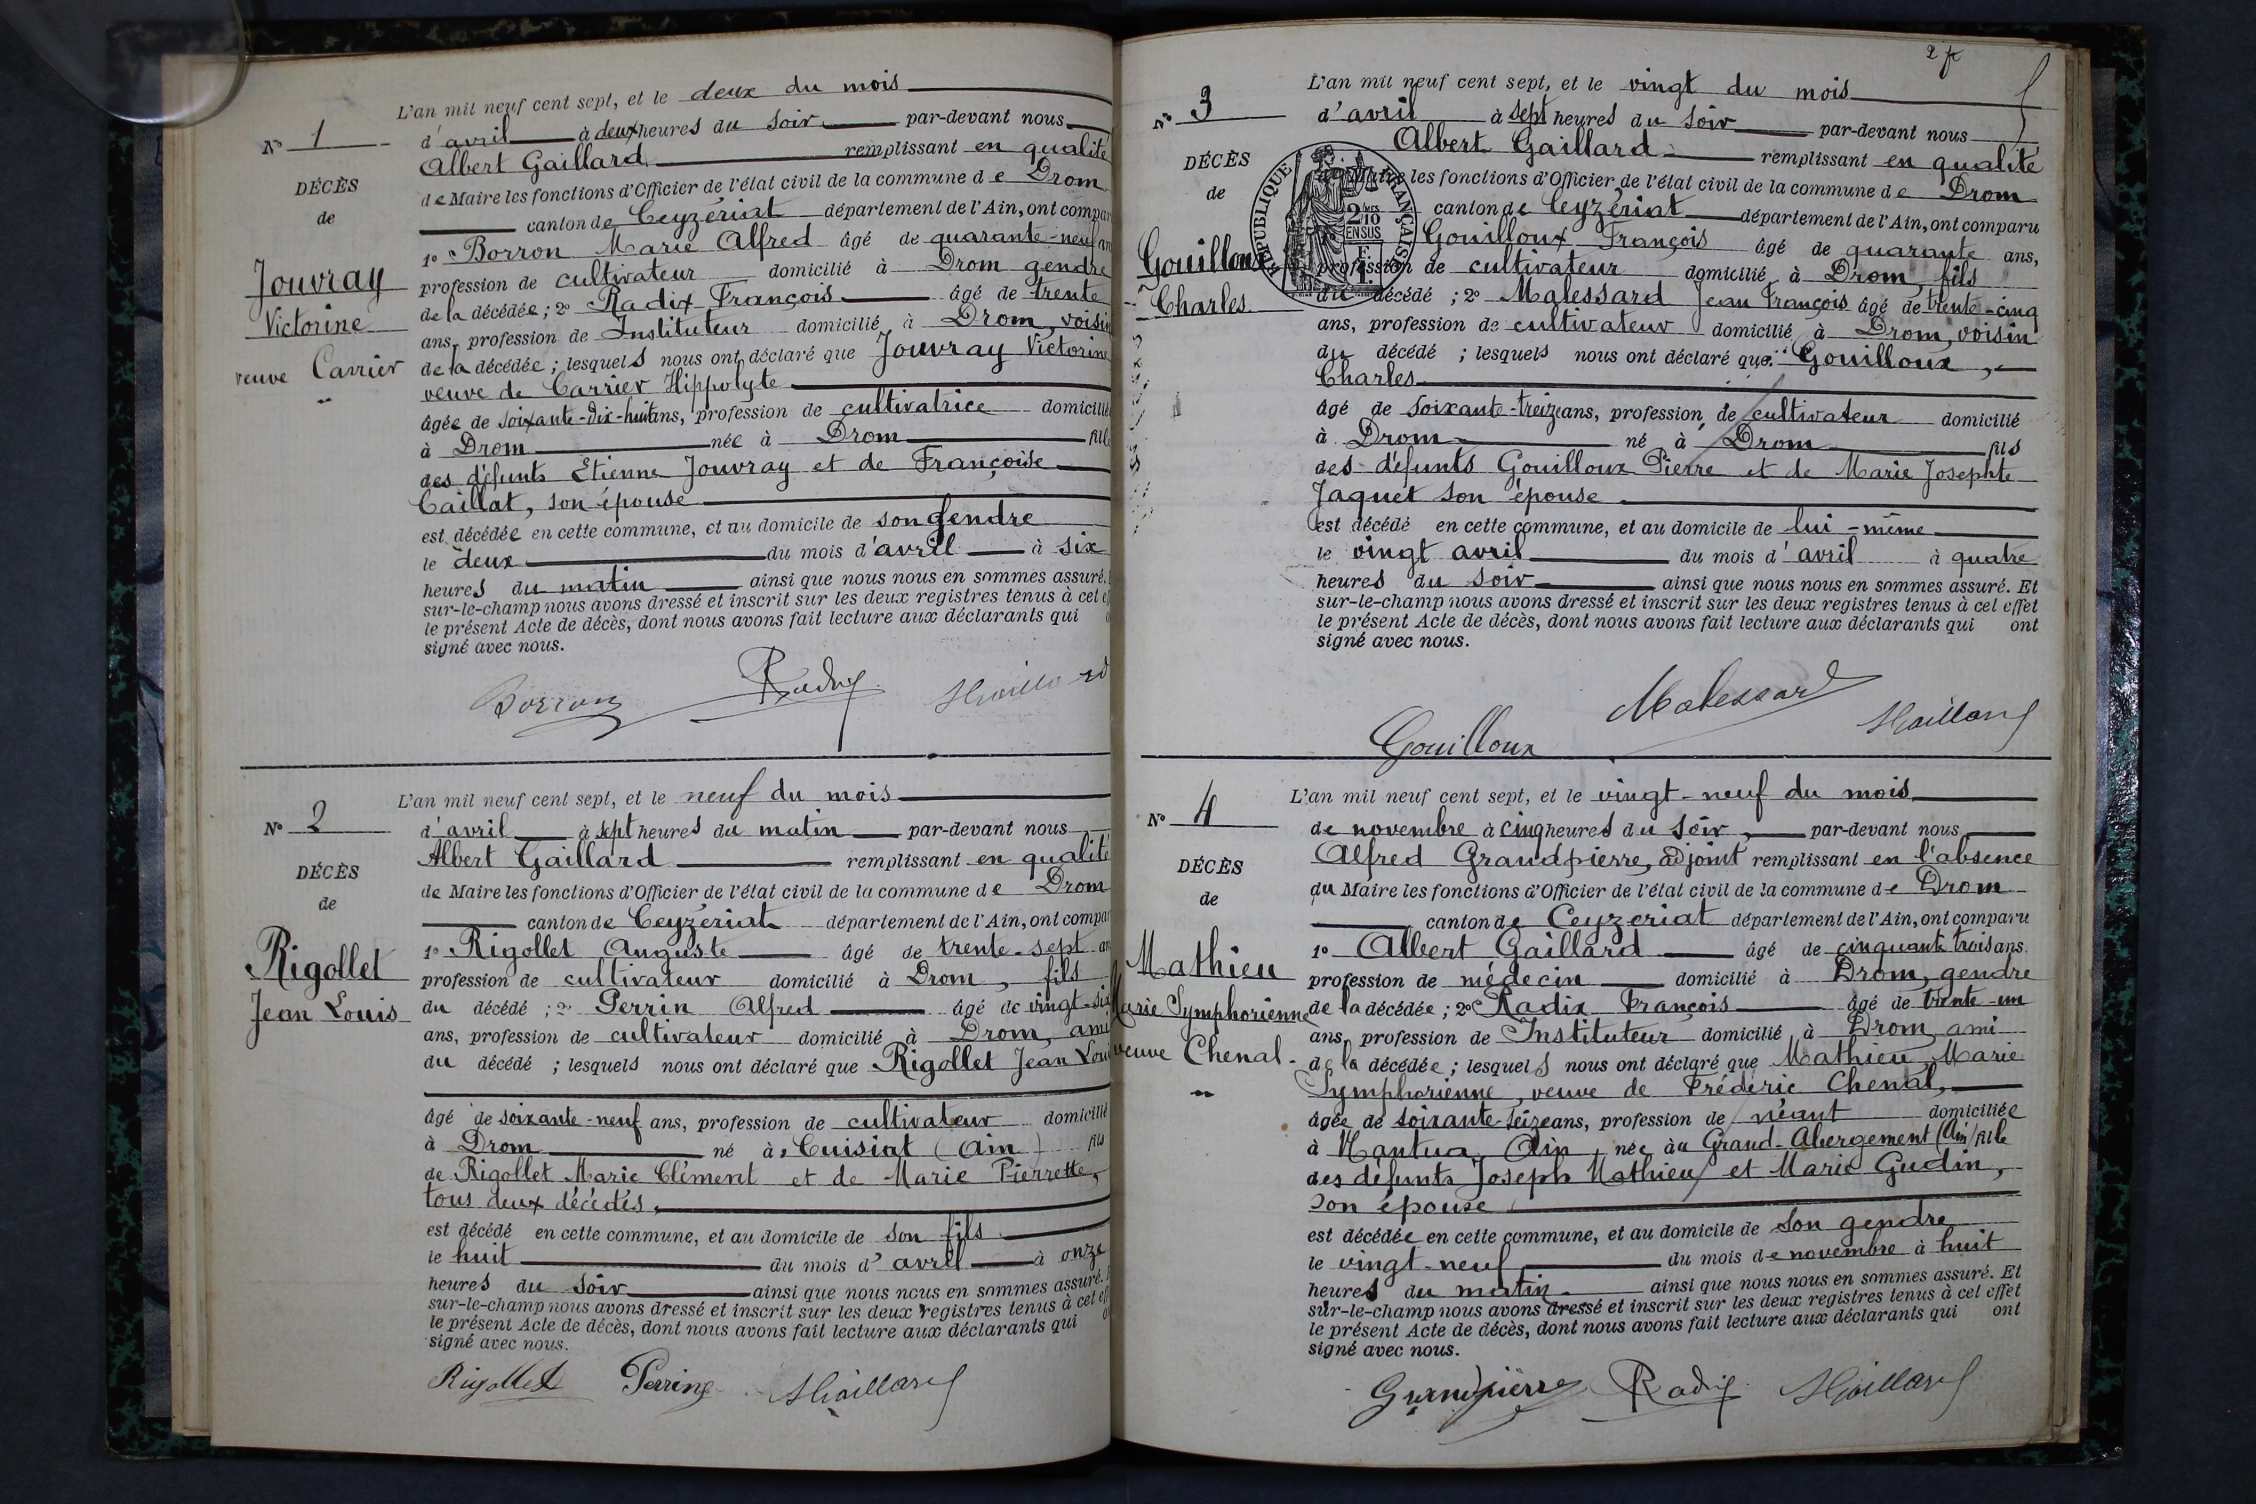 L'an mil neuf cent sept, et le deux du mois
N° 1
d'avril à deux heures du soir par-devant nous
Albert Gaillard remplissant en qualité
DÉCÈS
de Maire les fonctions d'Officier de l'état civil de la commune de Drom
de
canton de Ceyzériat département de l'Ain, ont compar
1° Borron Marie Alfred âgé de quarante-neuf an
Jouvray
profession de cultivateur domicilié à Drom gendre
de la décédée ; 2° Radix François âgé de trente
Victorine
ans, profession de Instituteur domicilié à Drom, voisin
veuve Carrier
de la décédée ; lesquels nous ont déclaré que Jouvray Victorine
veuve de Carrier Hippolyte
âgée de soixante-dix-huit ans, profession de cultivatrice domicilié
à Drom née à Drom fille
des défunts Etienne Jouvray et de Françoise
Caillat, son épouse
est décédée en cette commune, et au domicile de son gendre
le deux du mois d'avril à six
heures du matin ainsi que nous nous en sommes assuré.
sur-le-champ nous avons dressé et inscrit sur les deux registres tenus à cet ef
le présent Acte de décès, dont nous avons fait lecture aux déclarants qui
signé avec nous.
Borron Radix Gaillard
L'an mil neuf cent sept, et le neuf du mois
N° 2
d'avril à sept heures du matin par-devant nous
Albert Gaillard remplissant en qualité
DÉCÈS
de Maire les fonctions d'Officier de l'état civil de la commune de Drom
de
canton de Ceyzériat département de l'Ain, ont compar
1° Rigollet Auguste âgé de trente-sept an
Rigollet
profession de cultivateur domicilié à Drom, fils
Jean Louis
du décédé ; 2° Perrin Alfred âgé de vingt-six
ans, profession de cultivateur domicilié à Drom, ami
du décédé ; lesquels nous ont déclaré que Rigollet Jean Loui
âgé de soixante-neuf ans, profession de cultivateur domicilié
à Drom né à Cuisiat (Ain) fils
de Rigollet Marie Clément et de Marie Pierrette,
tous deux décédés,
est décédé en cette commune, et au domicile de son fils
le huit du mois d'avril à onze
heures du soir ainsi que nous nous en sommes assuré.
sur-le-champ nous avons dressé et inscrit sur les deux registres tenus à cet ef
le présent Acte de décès, dont nous avons fait lecture aux déclarants qui
signé avec nous.
Rigollet Perrin Gaillard
L'an mil neuf cent sept, et le vingt du mois
N° 3
d'avril à sept heures du soir par-devant nous
Albert Gaillard remplissant en qualité
DÉCÈS
les fonctions d'Officier de l'état civil de la commune de Drom
de
canton de Ceyzériat département de l'Ain, ont comparu
RÉPUBLIQUE FRANÇAISE
2/10 EN SUS
Gouilloux François âgé de quarante ans,
Gouilloux
profession de cultivateur domicilié à Drom, fils
Charles
du décédé ; 2° Malessard Jean François âgé de trente-cinq
ans, profession de cultivateur domicilié à Drom, voisin
du décédé ; lesquels nous ont déclaré que Gouilloux,
Charles
âgé de soixante-treize ans, profession de cultivateur domicilié
à Drom né à Drom fils
des défunts Gouilloux Pierre et de Marie Josephte
Jaquet son épouse
est décédé en cette commune, et au domicile de lui-même
le vingt avril du mois d'avril à quatre
heures du soir ainsi que nous nous en sommes assuré. Et
sur-le-champ nous avons dressé et inscrit sur les deux registres tenus à cet effet
le présent Acte de décès, dont nous avons fait lecture aux déclarants qui ont
signé avec nous.
Gouilloux Malessard Gaillard
L'an mil neuf cent sept, et le vingt-neuf du mois
N° 4
de novembre à cinq heures du soir, par-devant nous
Alfred Grandpierre, adjoint remplissant en l'absence
DÉCÈS
du Maire les fonctions d'Officier de l'état civil de la commune de Drom
de
canton de Ceyzeriat département de l'Ain, ont comparu
1° Albert Gaillard âgé de cinquante trois ans.
Mathieu
profession de médecin domicilié à Drom, gendre
Marie Symphorienne
de la décédée ; 2° Radix François âgé de trente-un
ans, profession de Instituteur domicilié à Drom, ami
veuve Chenal
de la décédée ; lesquels nous ont déclaré que Mathieu, Marie
Symphorienne, veuve de Frédéric Chenal,
âgée de soixante-seize ans, profession de néant domiciliée
à Nantua, Ain, née au Grand-Abergement (Ain) fille
des défunts Joseph Mathieu et Marie Gudin,
son épouse
est décédée en cette commune, et au domicile de son gendre
le vingt-neuf du mois de novembre à huit
heures du matin ainsi que nous nous en sommes assuré. Et
sur-le-champ nous avons dressé et inscrit sur les deux registres tenus à cet effet
le présent Acte de décès, dont nous avons fait lecture aux déclarants qui ont
signé avec nous.
Grandpierre Radix Gaillard